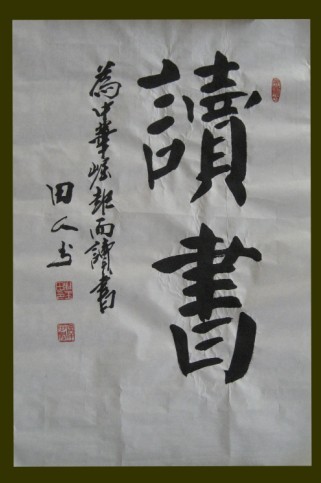 讀書
為中華崛起而讀書
田人书